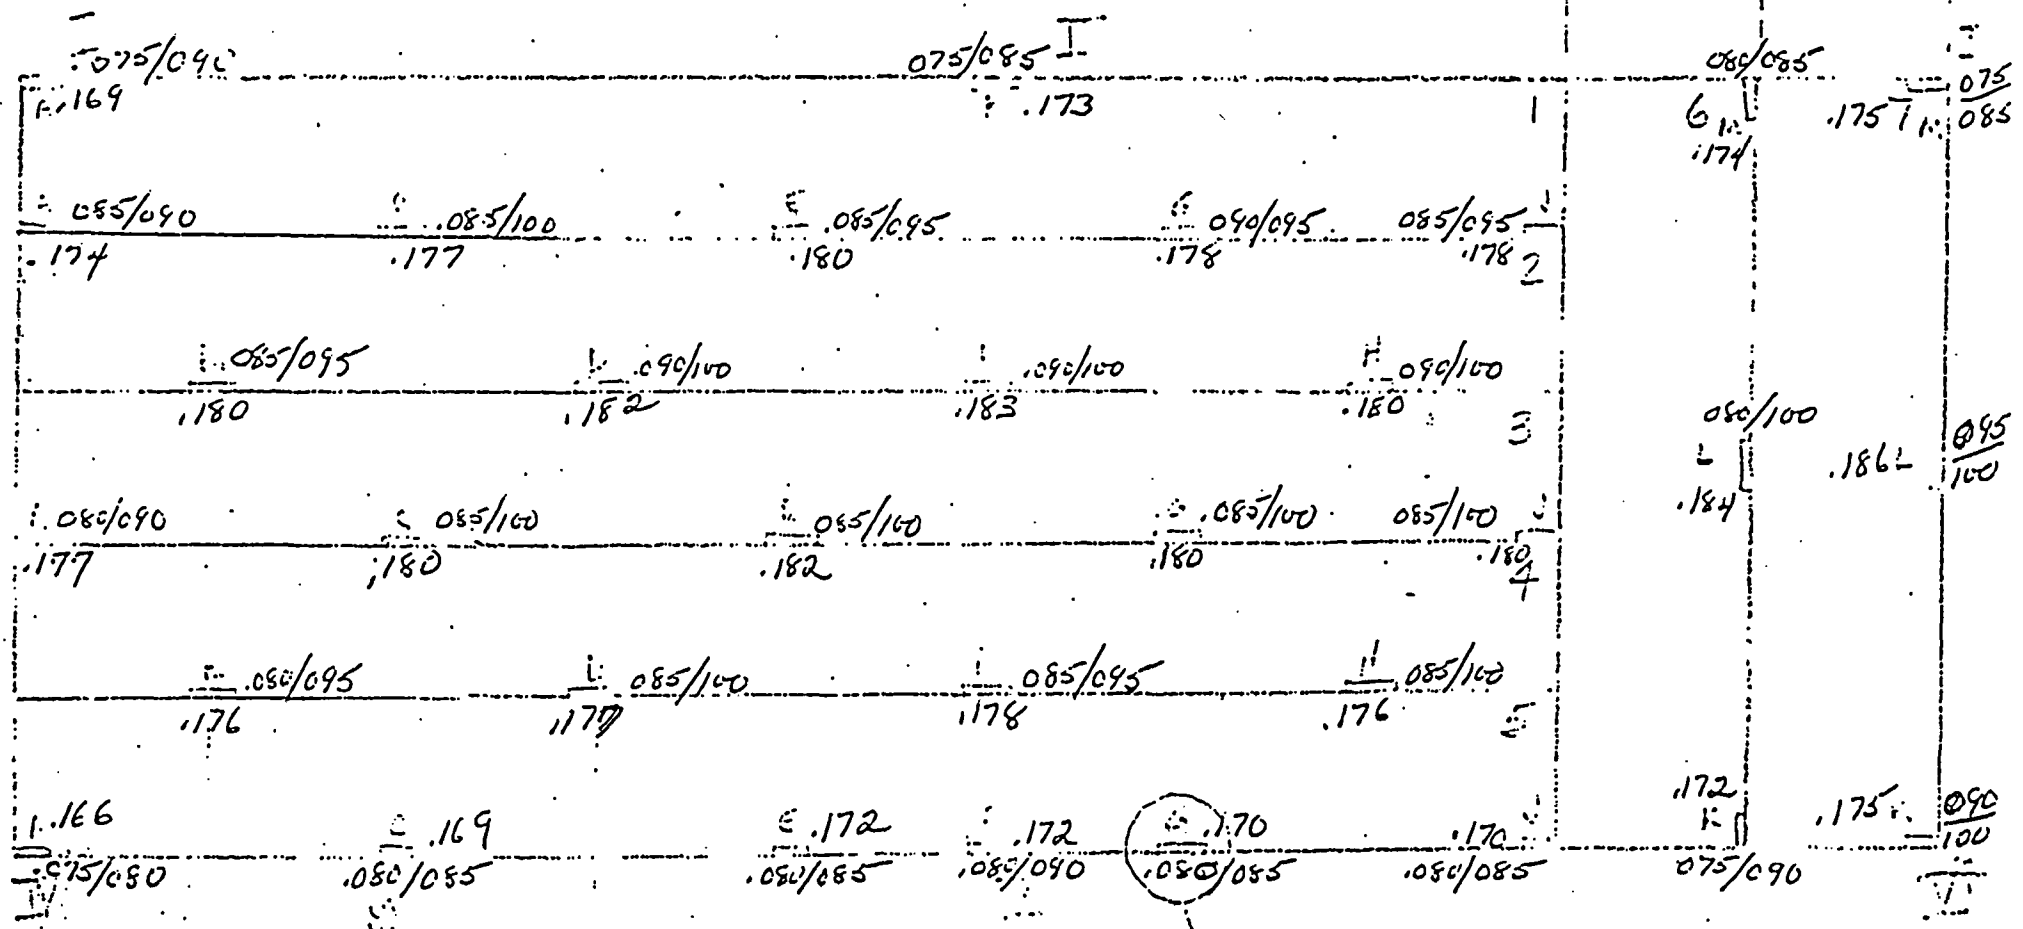 075/090 075/085 I 080/085 075
.169 .173 1 6 .174 .175 085
085/090 .085/100 E .085/095 G 090/095 085/095 J
.174 .177 .180 .178 .178 2
085/095 .090/100 .090/100 H 090/100
.180 .182 .183 .180 3
080/100 L .184 .186 L 095
100
080/090 C 085/100 085/100 .085/100 085/100 J
.177 .180 .182 .180 .180 4
.080/095 085/100 085/095 H 085/100
.176 .177 .178 .176 5
.166 C .169 E .172 .172 G .170 .170 J .172 K .175 090
075/080 .080/085 .080/085 .080/090 .080/085 .080/085 075/090 100